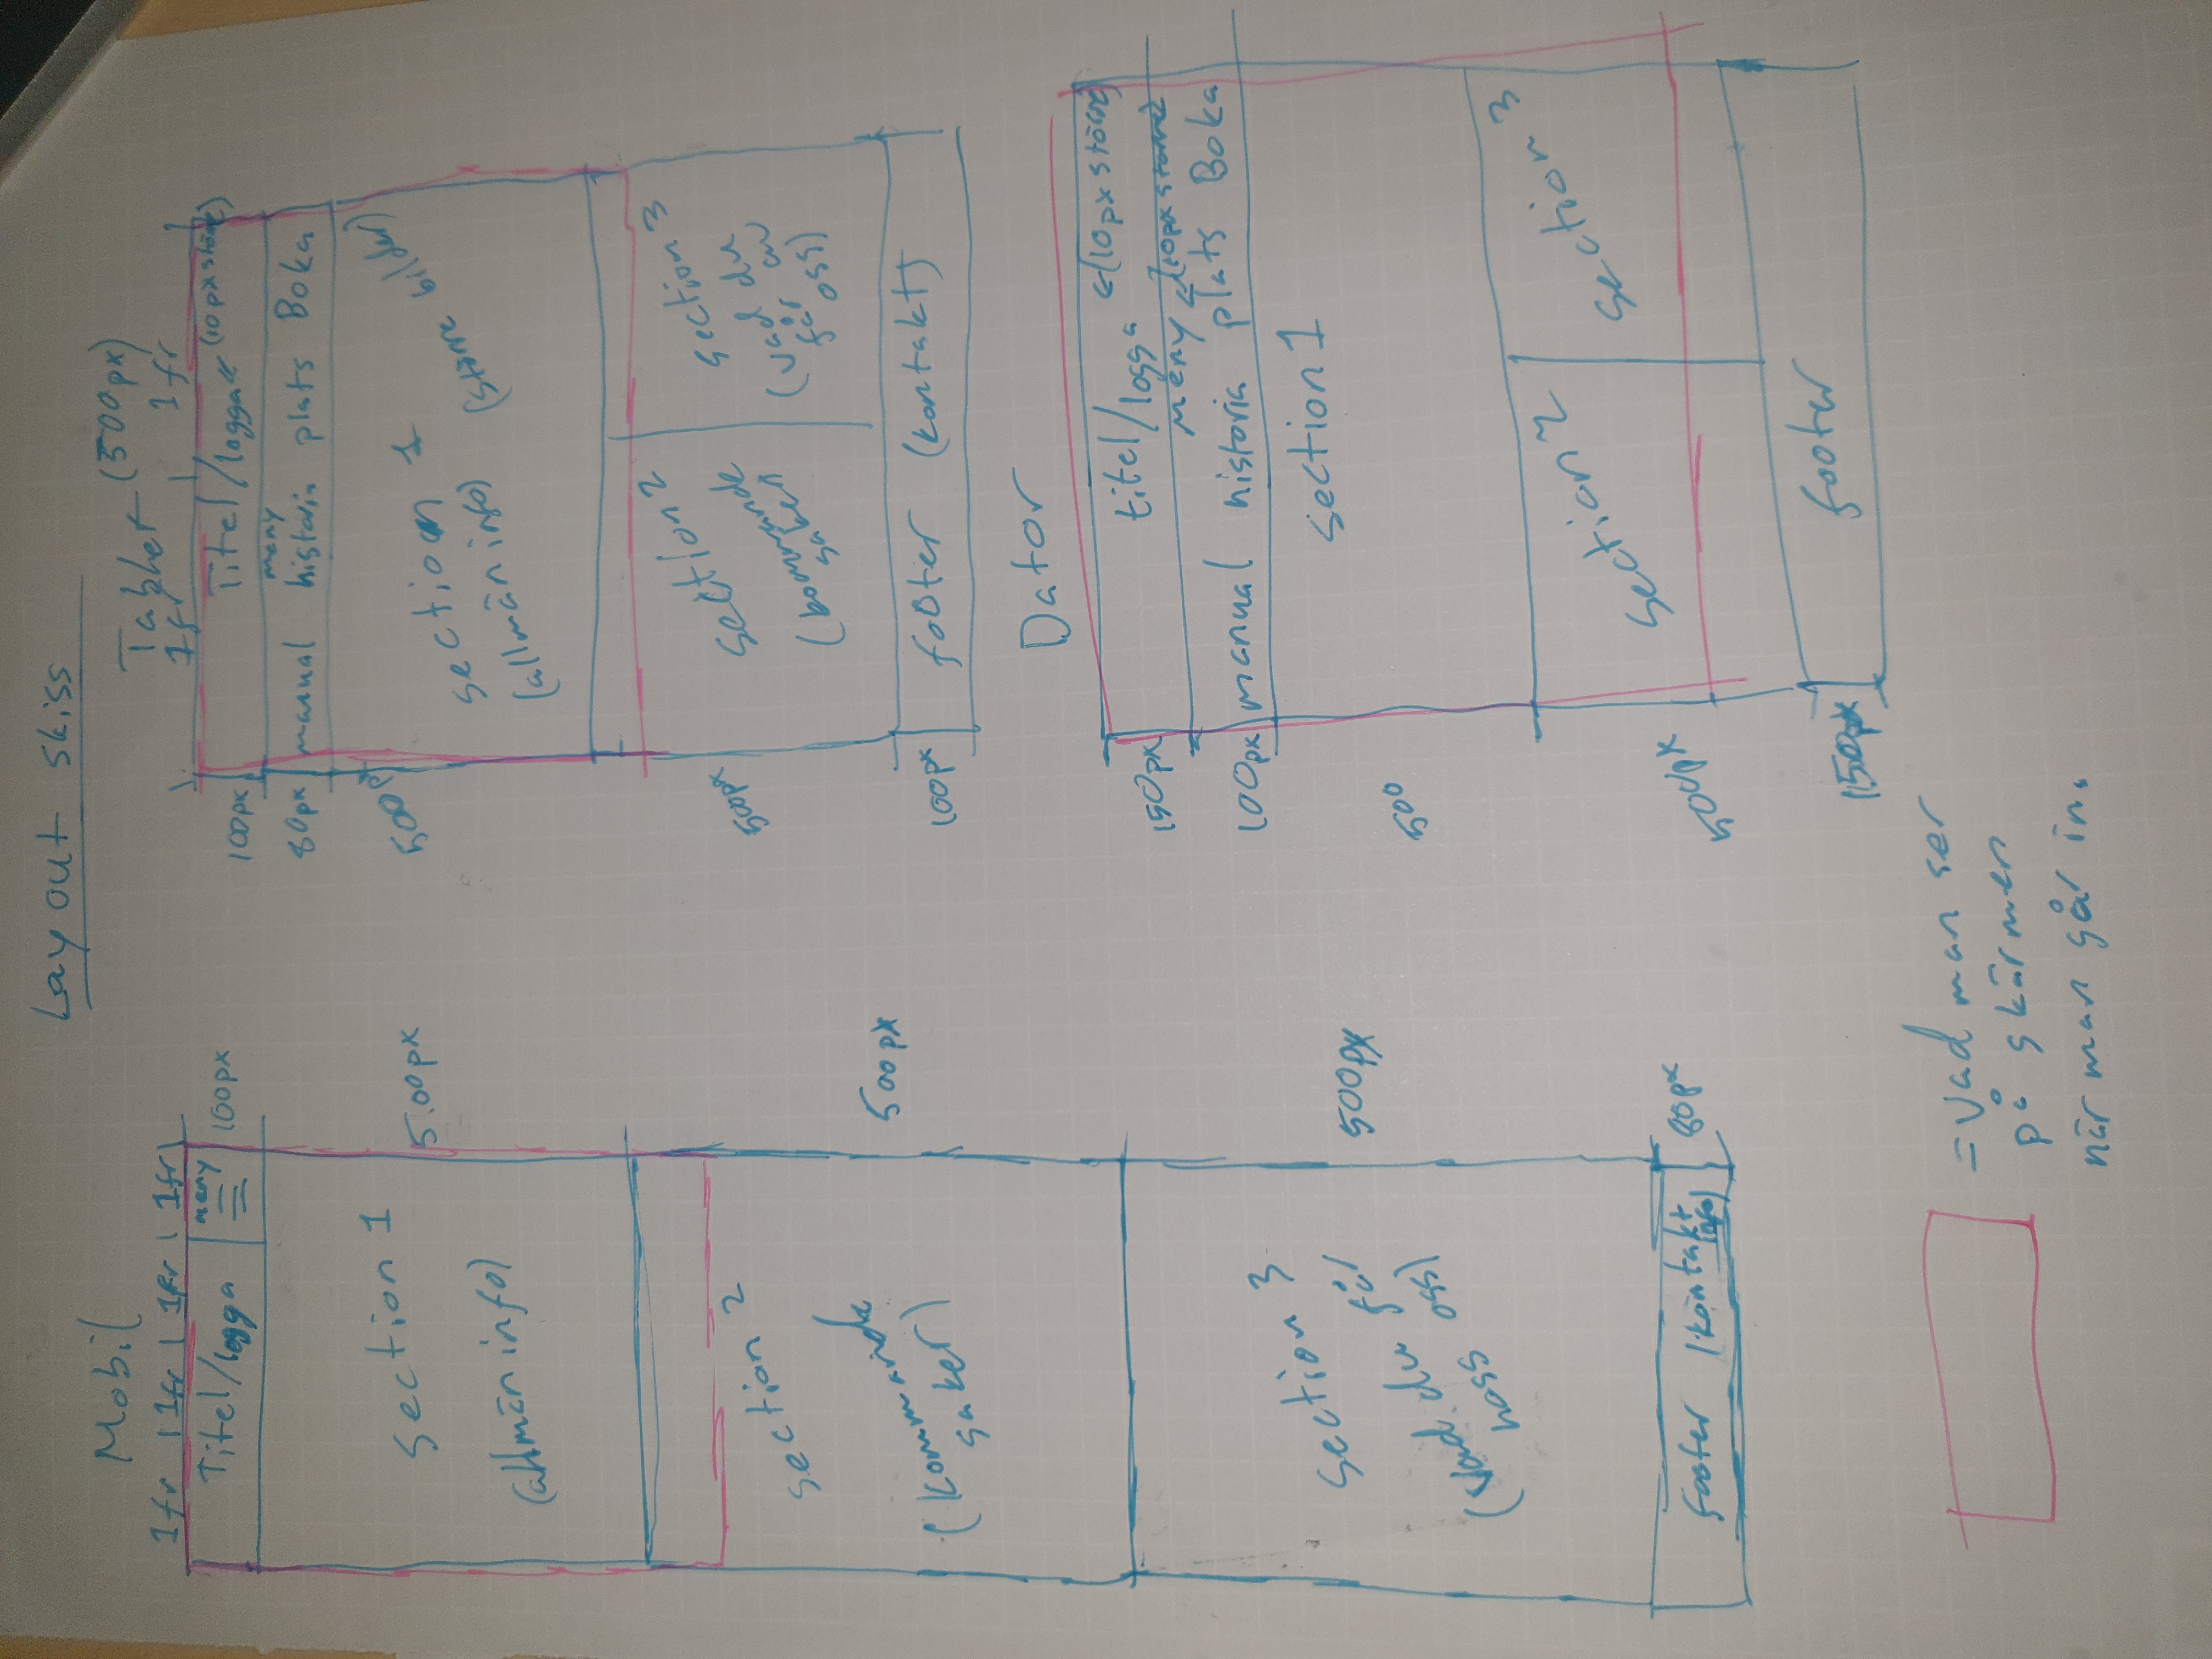 Layout skiss
Mobil
1fr 1fr 1fr 1fr
Titel/logga
meny
100px
Section 1
(allmän info)
5.00px
Section 2
(Kommande
saker)
500px
Section 3
(vad du får
hoss oss)
500px
footer (kontakt
info)
80px
Tablet (500px)
1fr 1fr
100px
Titel/logga (10px större)
meny
80px
manual historia plats Boka
500px
section 1
(allmän info)
(större bilder)
500px
section 2
(kommande
saker)
section 3
(vad du
får av
oss)
100px
footer (kontakt)
Dator
150px
titel/logga ←(10px större)
meny (10px större)
100px
manual historia plats Boka
section 1
500
section 2
section 3
500px
150px
footer
= vad man ser
på skärmen
när man går in.